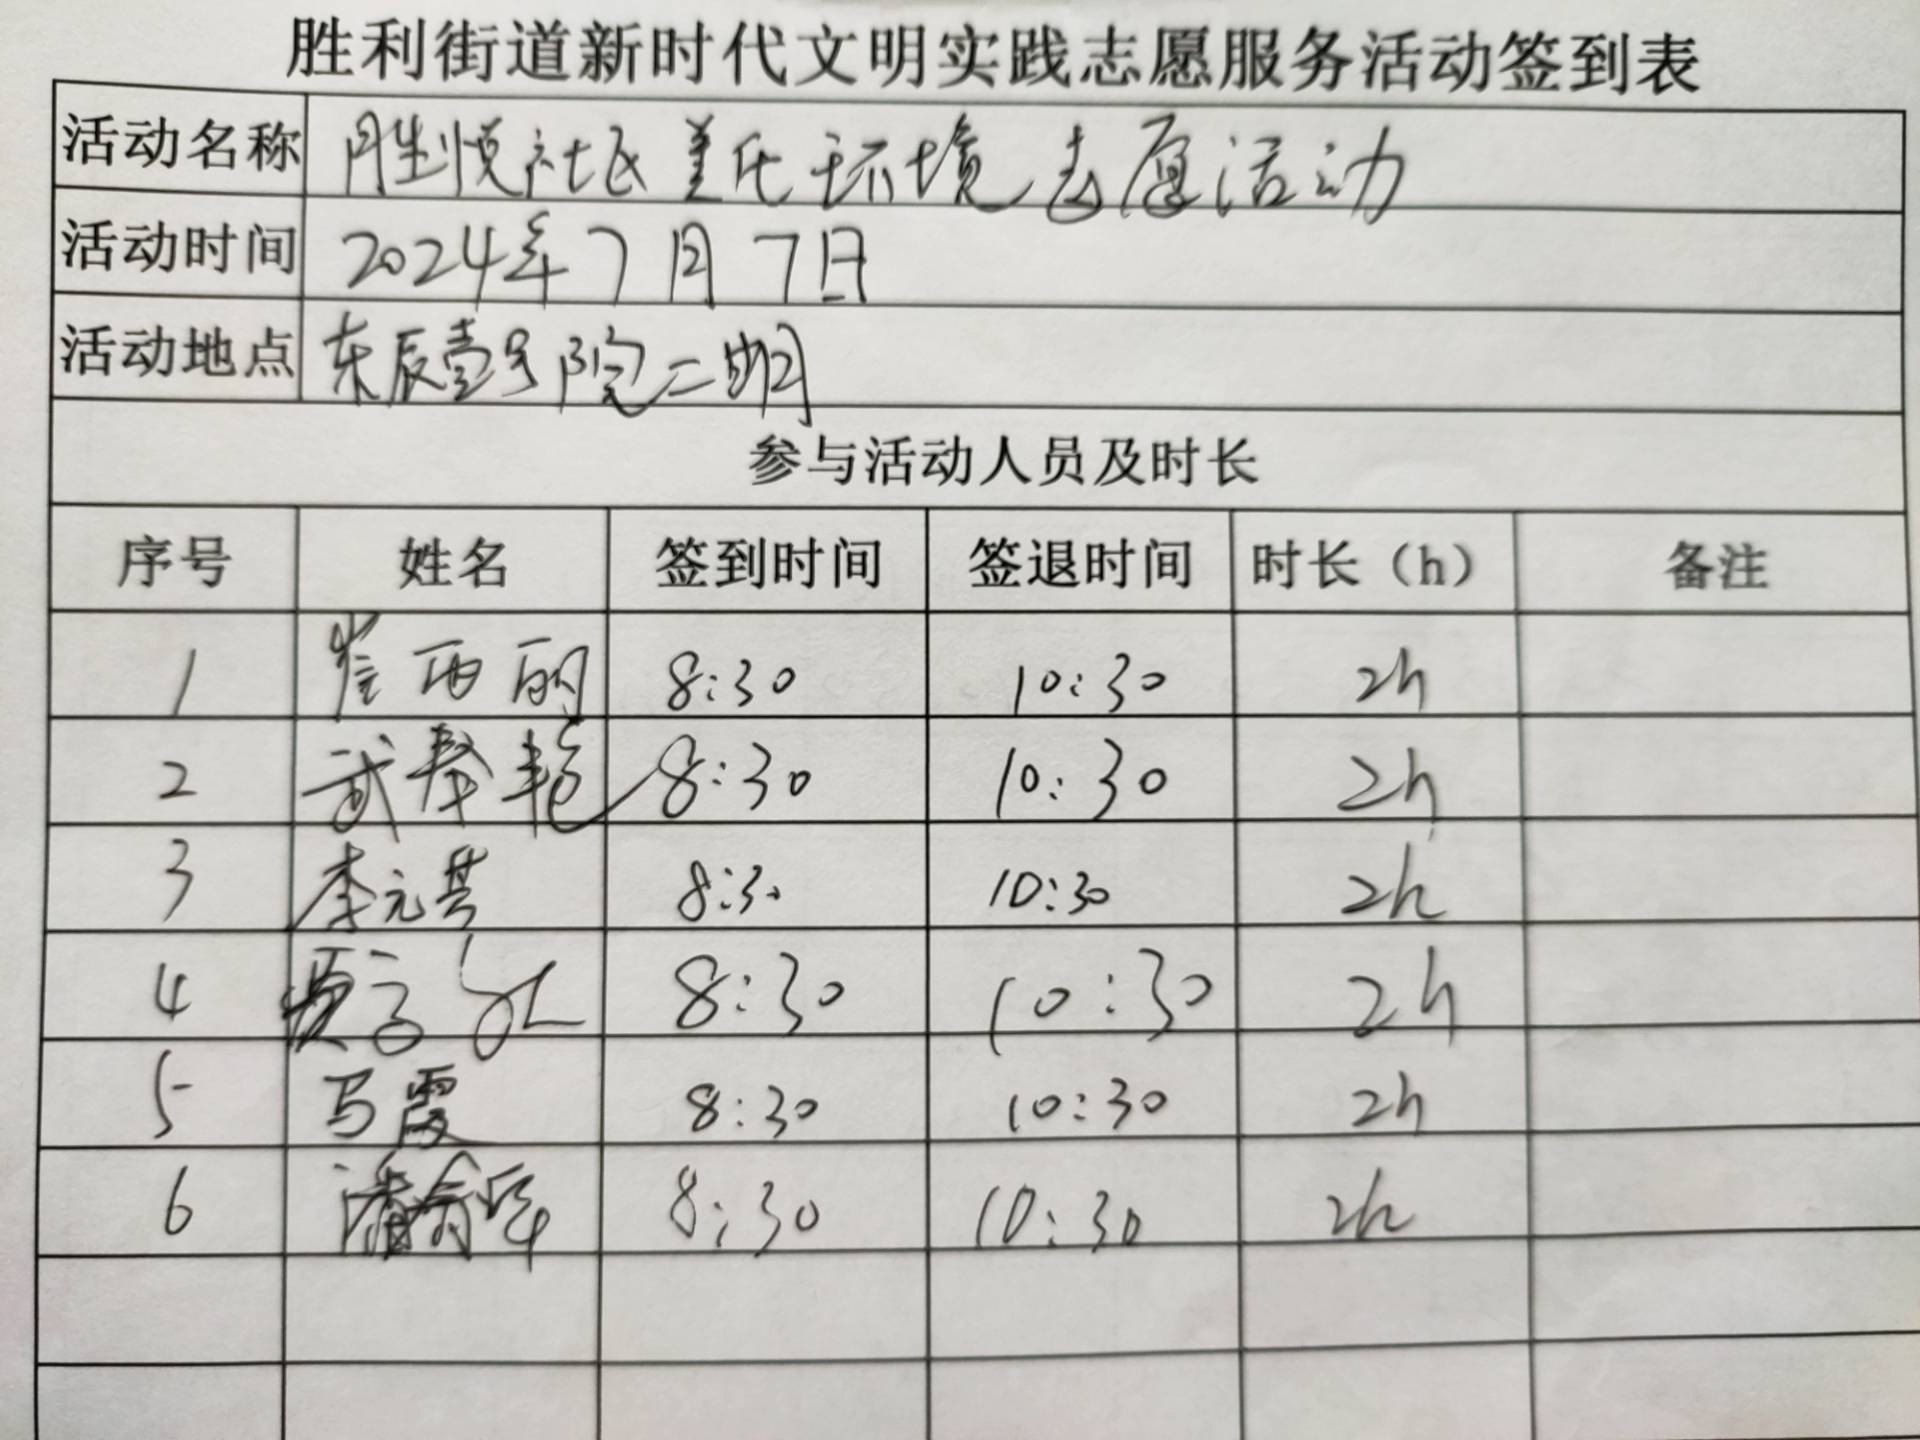 胜利街道新时代文明实践志愿服务活动签到表
活动名称 胜悦社区美化环境志愿活动
活动时间 2024年7月7日
活动地点 东辰壹号院二期
参与活动人员及时长
序号 姓名 签到时间 签退时间 时长（h） 备注
1 崔西 8:30 10:30 2h
2 武春艳 8:30 10:30 2h
3 李元其 8:30 10:30 2h
4 贾 8:30 10:30 2h
5 马霞 8:30 10:30 2h
6 潘 8:30 10:30 2h